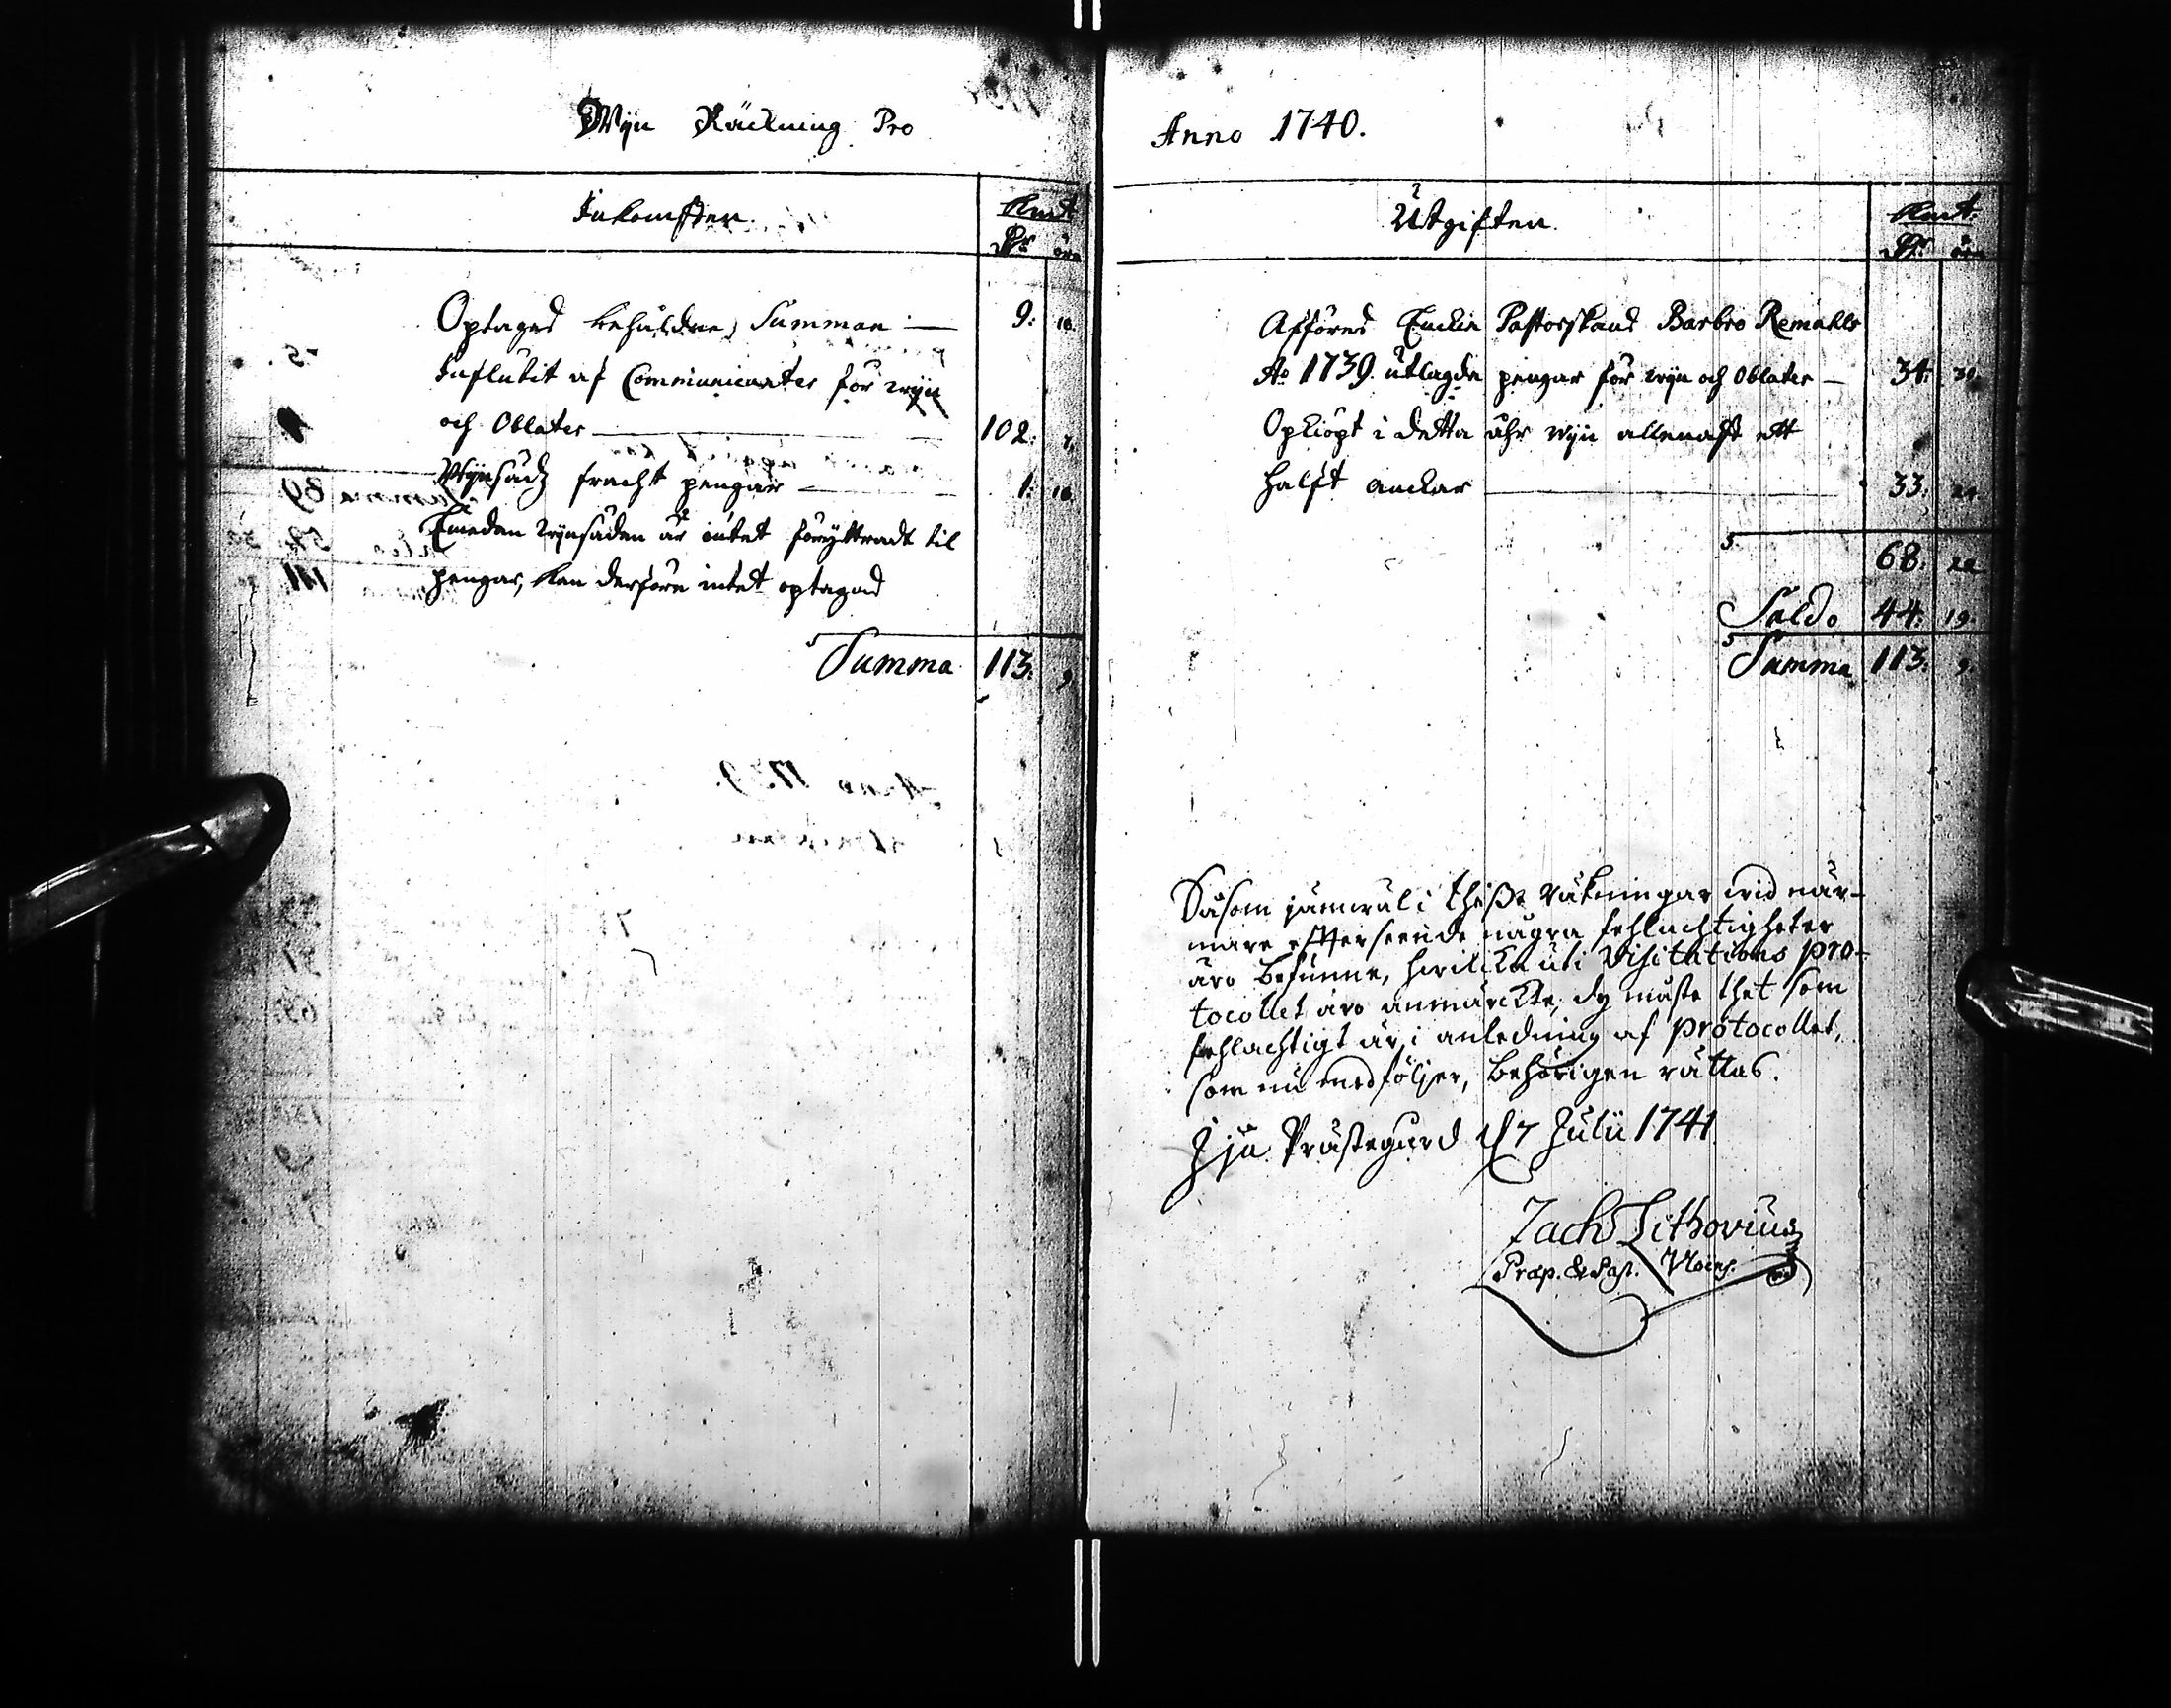 Wijn Räckning Pro
Inkomsten.
Kmt.
Dr öre
Optages behåldne Summan — 9: 10.
Influtit af Communicanter för wijn
och Oblater — 102: 7.
Wijnsädz fracht pengar — 1: 16.
Emedan wijnsäden är intet föryttradt til
pengar, kan derföre intet optagas
Summa 113. 9
Anno 1740.
Utgiften.
Kmt.
Dr. öre
Afföres Enckie Pastorskans Barbro Remahls
Ao 1739. utlagde pengar för wijn och Oblater — 34: 30.
Opkiöpt i detta åhr wijn allenast ett
halft anckar — 33: 24.
68: 22
Saldo 44: 19.
Summa 113. 9.
Såsom jämwäl i theße räkningar wid när-
mare efterseende några fehlachtigheter
äro befunne, hwilcka uti Visitations pro-
tocollet äro anmärckte, dy måste thet som
fehlachtigt är, i anledning af protocollet,
som nu medföljer, behörigen rättas.
Ijå Prästegård d 7 Julii 1741
Zach Lithovius
Præp. & Past.